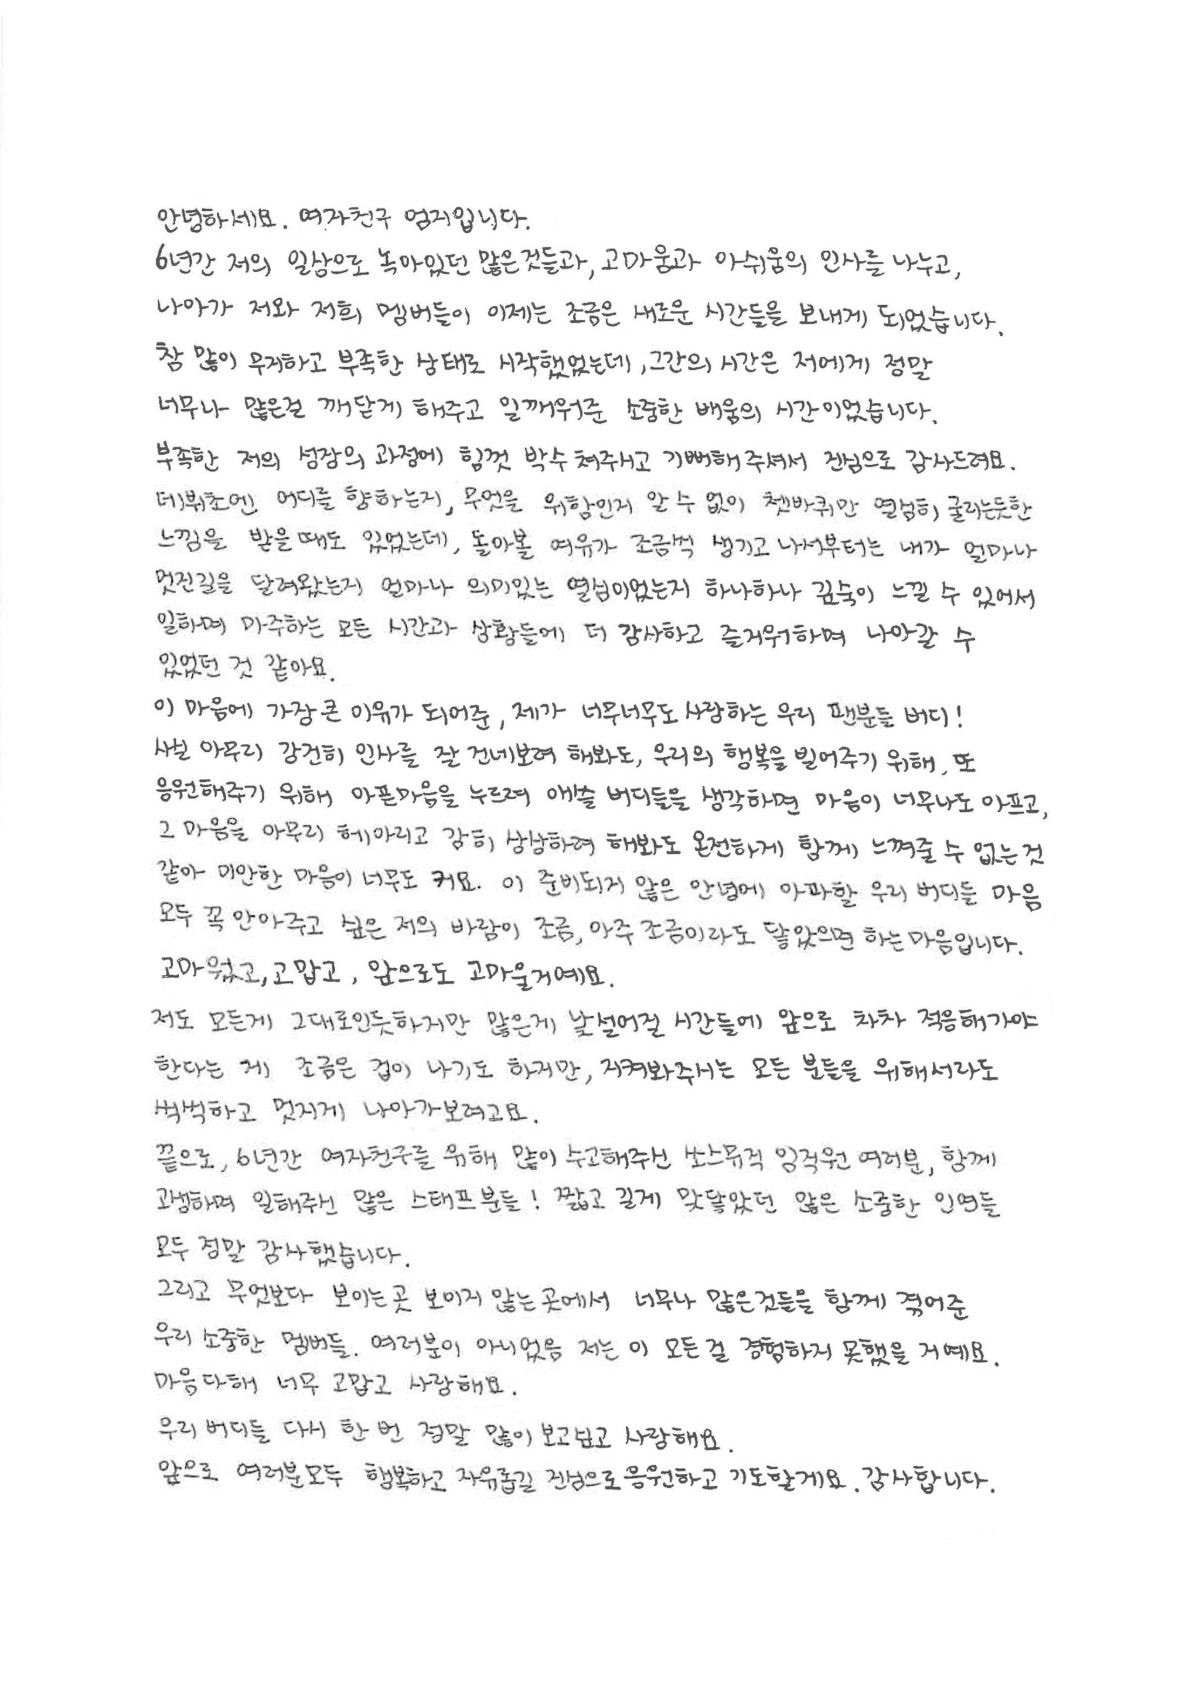 안녕하세요. 여자친구 엄지입니다.
6년간 저의 일상으로 녹아있던 많은것들과, 고마움과 아쉬움의 인사를 나누고,
나아가 저와 저희 멤버들이 이제는 조금은 새로운 시간들을 보내게 되었습니다.
참 많이 무지하고 부족한 상태로 시작했었는데, 그간의 시간은 저에게 정말
너무나 많은걸 깨닫게 해주고 일깨워준 소중한 배움의 시간이었습니다.
부족한 저의 성장의 과정에 힘껏 박수 쳐주시고 기뻐해주셔서 진심으로 감사드려요.
데뷔초엔 어디를 향하는지, 무엇을 위함인지 알 수 없이 쳇바퀴만 열심히 굴리는듯한
느낌을 받을때도 있었는데, 돌아볼 여유가 조금씩 생기고 나서부터는 내가 얼마나
멋진길을 달려왔는지 얼마나 의미있는 열심이었는지 하나하나 깊숙이 느낄 수 있어서
일하며 마주하는 모든 시간과 상황들에 더 감사하고 즐거워하며 나아갈 수
있었던 것 같아요.
이 마음에 가장 큰 이유가 되어준, 제가 너무너무도 사랑하는 우리 팬분들 버디!
사실 아무리 강건히 인사를 잘 건네보려 해봐도, 우리의 행복을 빌어주기 위해, 또
응원해주기 위해 아픈마음을 누르려 애쓸 버디들을 생각하면 마음이 너무나도 아프고,
그 마음을 아무리 헤아리고 감히 상상하려 해봐도 온전하게 함께 느껴줄 수 없는것
같아 미안한 마음이 너무도 커요. 이 준비되지 않은 안녕에 아파할 우리 버디들 마음
모두 꼭 안아주고 싶은 저의 바람이 조금, 아주 조금이라도 닿았으면 하는 마음입니다.
고마웠고, 고맙고, 앞으로도 고마울거예요.
저도 모든게 그대로인듯하지만 많은게 낯설어질 시간들에 앞으로 차차 적응해가야
한다는 게 조금은 겁이 나기도 하지만, 지켜봐주시는 모든 분들을 위해서라도
씩씩하고 멋지게 나아가보려고요.
끝으로, 6년간 여자친구를 위해 많이 수고해주신 쏘스뮤직 임직원 여러분, 함께
고생하며 일해주신 많은 스태프분들! 짧고 길게 맞닿았던 많은 소중한 인연들
모두 정말 감사했습니다.
그리고 무엇보다 보이는곳 보이지 않는곳에서 너무나 많은것들을 함께 겪어준
우리 소중한 멤버들. 여러분이 아니었음 저는 이 모든걸 경험하지 못했을 거예요.
마음다해 너무 고맙고 사랑해요.
우리 버디들 다시 한 번 정말 많이 보고싶고 사랑해요.
앞으로 여러분모두 행복하고 자유롭길 진심으로응원하고 기도할게요. 감사합니다.